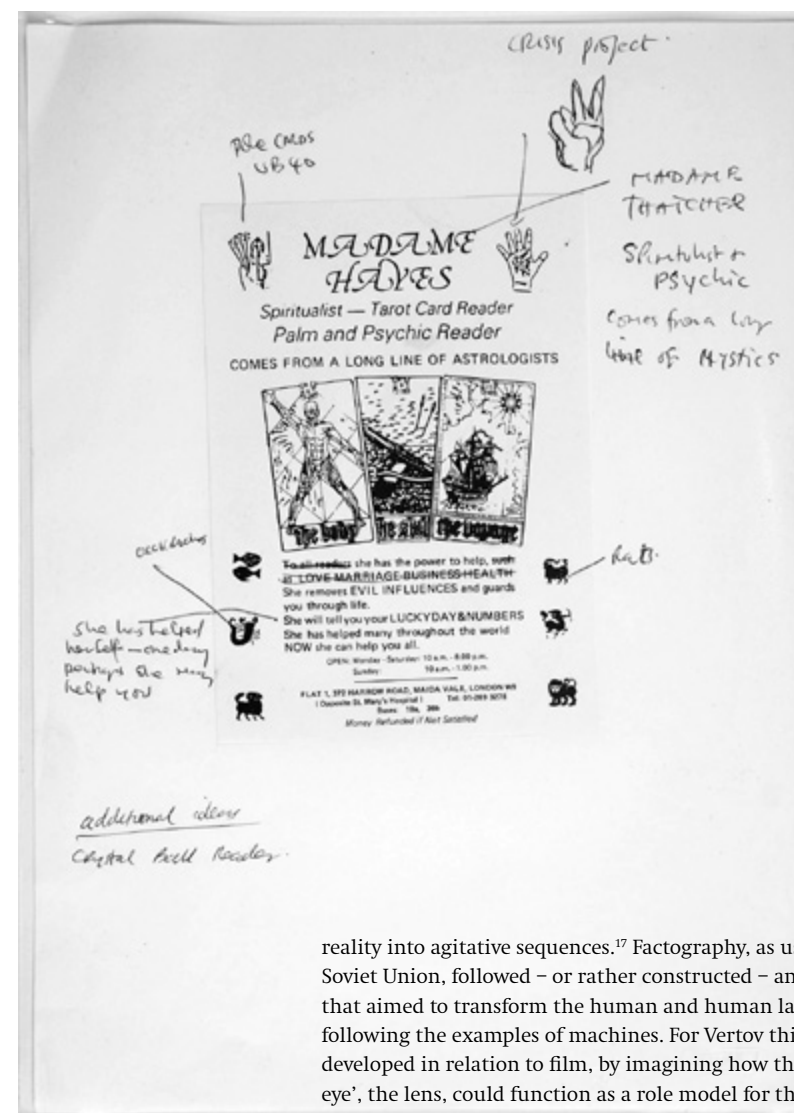 CRISIS project.
CARDS
UB40
MADAME
THATCHER
Spiritualist &
PSychic
comes from a long
line of MYSTICS
MADAME
HAYES
Spiritualist — Tarot Card Reader
Palm and Psychic Reader
COMES FROM A LONG LINE OF ASTROLOGISTS
the body
the soul
the voyage
Rats.
To all readers she has the power to help, such
as LOVE-MARRIAGE-BUSINESS-HEALTH
She removes EVIL INFLUENCES and guards
you through life.
She will tell you your LUCKYDAY&NUMBERS
She has helped many throughout the world
NOW she can help you all.
OPEN: Monday - Saturday: 10 a.m. - 8.00 p.m.
Sunday: 10 a.m. - 1.00 p.m.
FLAT 1, 372 HARROW ROAD, MAIDA VALE, LONDON W9
(Opposite St. Mary's Hospital) Tel: 01-289 9278
Buses: 18s, 36b
Money Refunded if Not Satisfied
She has helped
herself – one day
perhaps she may
help you
additional ideas
Crystal Ball Reader.
reality into agitative sequences.17 Factography, as u
Soviet Union, followed – or rather constructed – an
that aimed to transform the human and human la
following the examples of machines. For Vertov thi
developed in relation to film, by imagining how th
eye’, the lens, could function as a role model for th